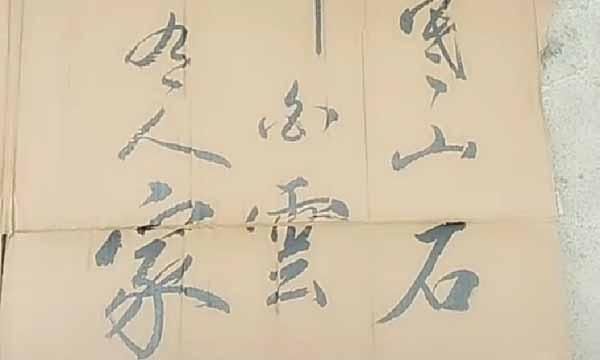 寒山石
白雲
有人家